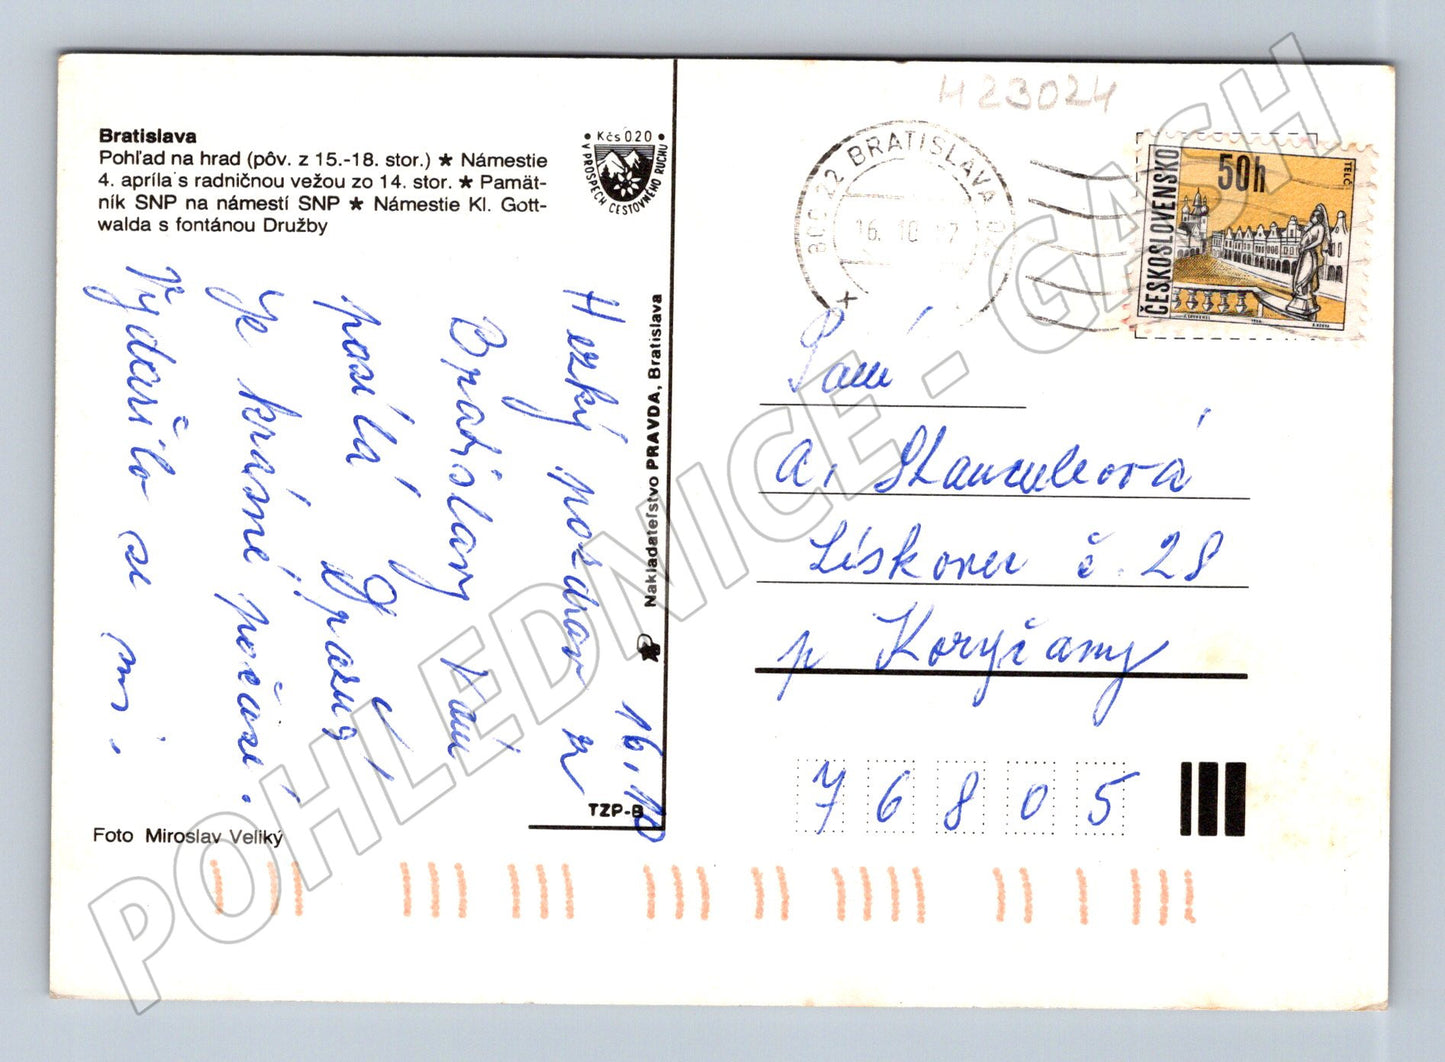 Bratislava
Pohľad na hrad (pôv. z 15.-18. stor.) ★ Námestie
4. apríla s radničnou vežou zo 14. stor. ★ Pamät-
ník SNP na námestí SNP ★ Námestie Kl. Gott-
walda s fontánou Družby
• Kčs 020 •
V PROSPECH CESTOVNÉHO RUCHU
16. 10
Hezký pozdrav z
Bratislavy Vám
posílá
Je krásné počasí.
Vydařilo se mi.
Foto Miroslav Veliký
Nakladateľstvo PRAVDA, Bratislava
TZP-B
H23024
BRATISLAVA
16. 10
ČESKOSLOVENSKO
50h
TELČ
Paní
A.
Lískovec č. 28
p Koryčany
76805
POHLEDNICE - GASH